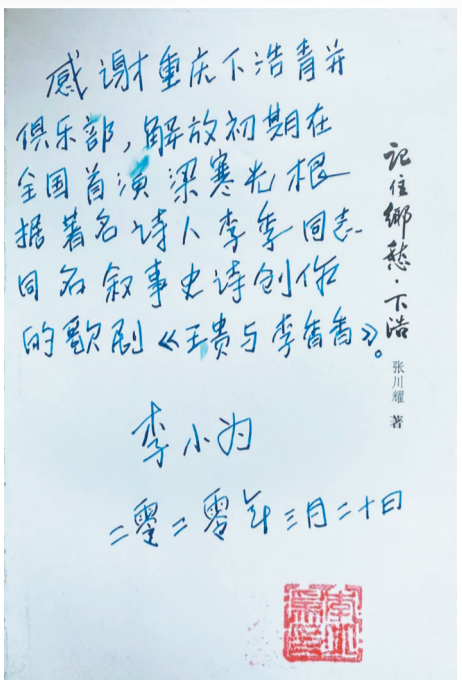 感谢重庆下浩青年
俱乐部，解放初期在
全国首演梁寒光根
据著名诗人李季同志
同名叙事史诗创作
的歌剧《王贵与李香香》。
李小为
二零二零年三月二十日
记住乡愁·下浩
张川耀 著